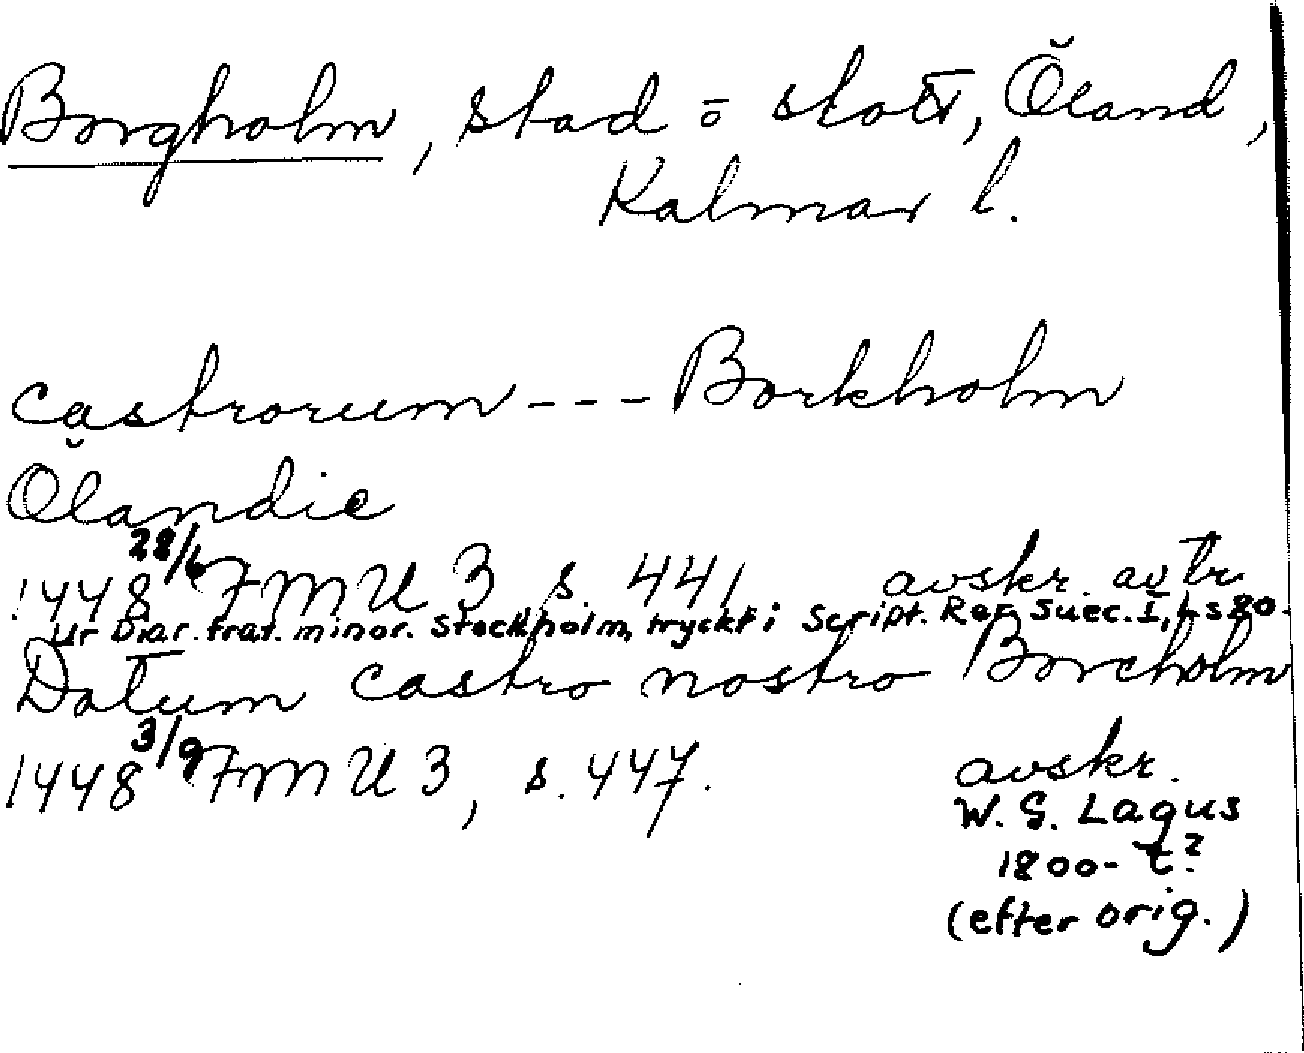 Borgholm, stad = slott, Öland,
Kalmar l.
castrorum --- Borkholm
Ölandie
1448 28/6 FMU 3 s. 441 avskr. av tr.
ur Diar. frat. minor. Stockholm, tryckt i Script. Rer. Suec. I, s 80.
Datum castro nostro Borcholm
1448 3/9 FMU 3, s. 447. avskr.
W. G. Lagus
1800-t?
(efter orig.)